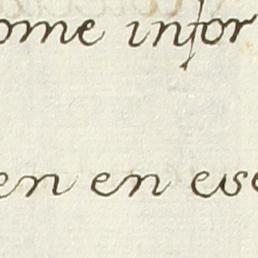 ome infor
en en ese